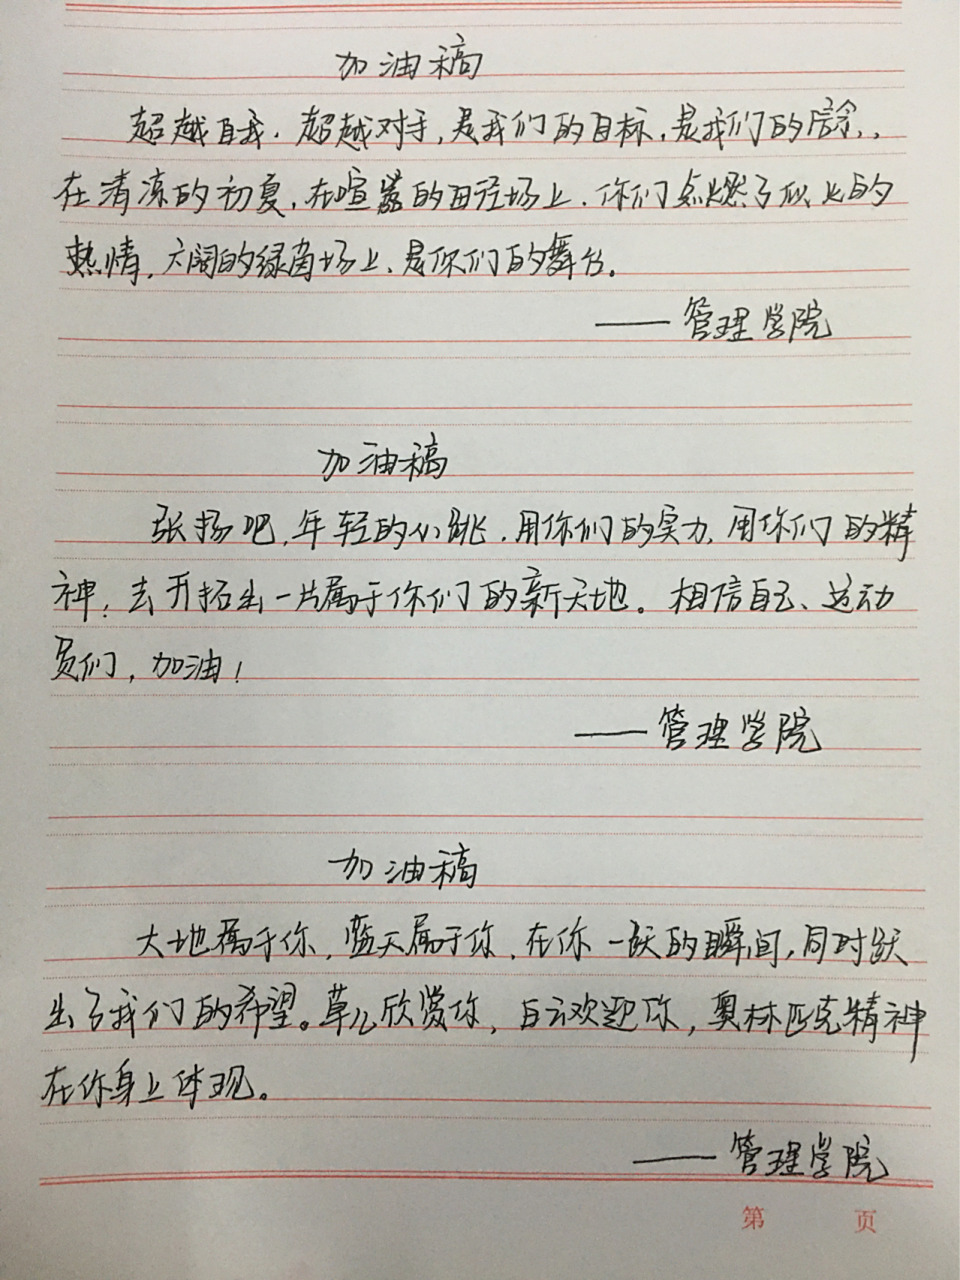 加油稿
超越自我.超越对手,是我们的目标,是我们的
在清凉的初夏,在喧嚣的田径场上.你们点燃了似火的
热情,广阔的绿茵场上、是你们的舞台.
——管理学院
加油稿
张扬吧,年轻的心跳.用你们的实力,用你们的精
神,去开拓出一片属于你们的新天地。相信自己、运动
员们,加油!
——管理学院
加油稿
大地属于你,蓝天属于你,在你一跃的瞬间,同时跃
出了我们的希望。草儿欣赏你,白云欢迎你,奥林匹克精神
在你身上体现。
——管理学院
第 页